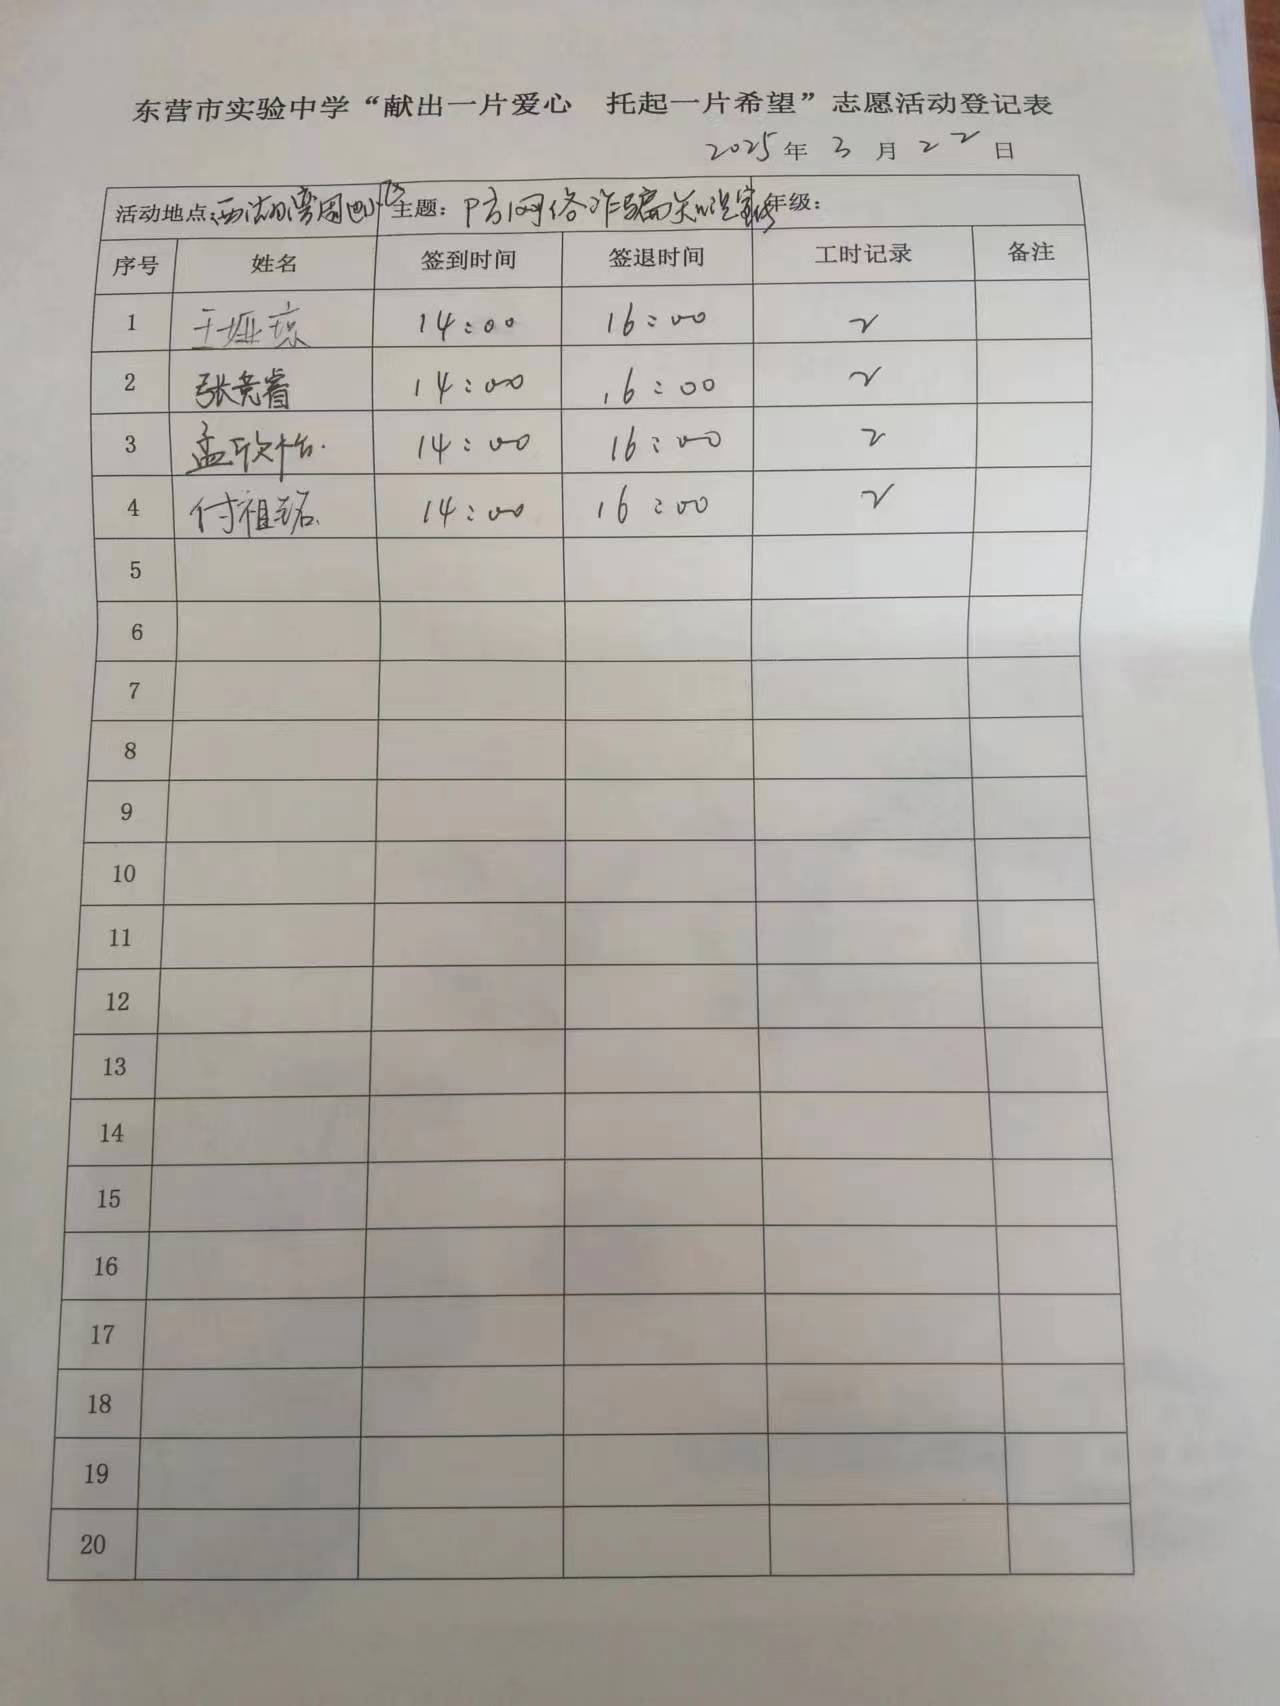 东营市实验中学“献出一片爱心 托起一片希望”志愿活动登记表
2025年 3 月 22 日
活动地点: 西湖湾周 主题: 防网络诈骗知识宣传 年级:
序号 姓名 签到时间 签退时间 工时记录 备注
1 王娅琼 14:00 16:00 2
2 张竞睿 14:00 16:00 2
3 孟欣怡 14:00 16:00 2
4 付祖铭 14:00 16:00 2
5
6
7
8
9
10
11
12
13
14
15
16
17
18
19
20